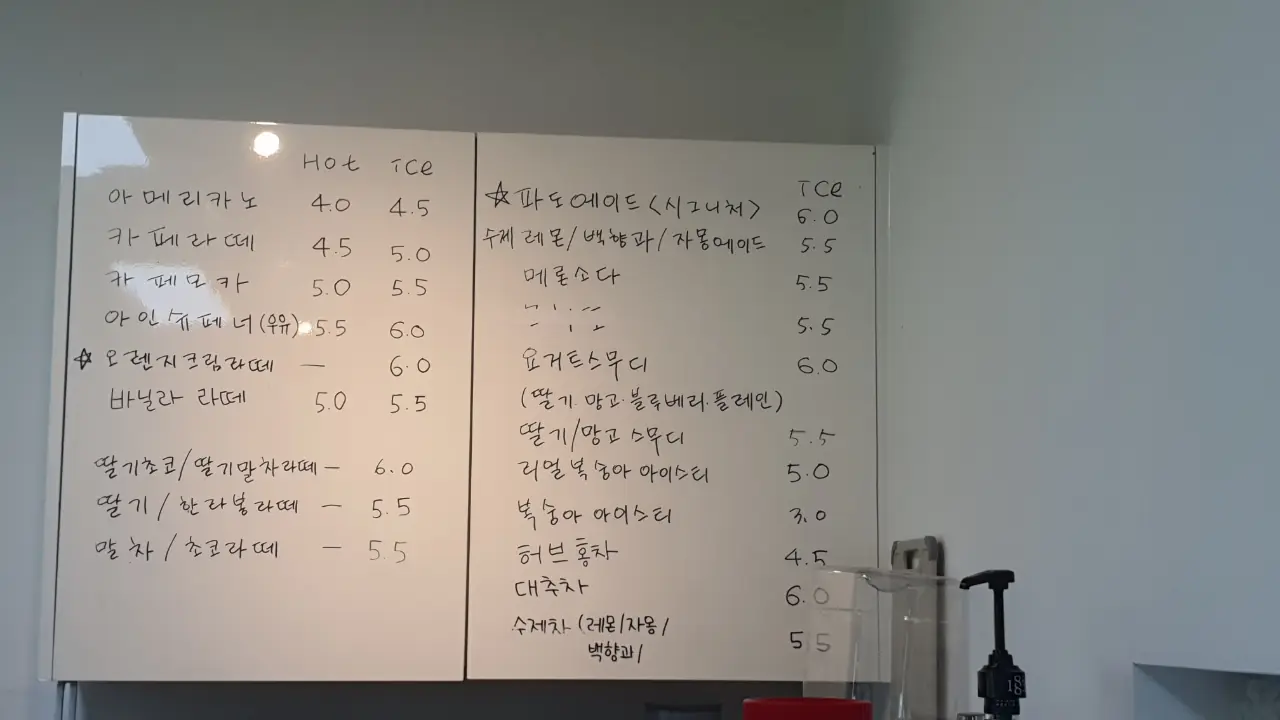 Hot ICe
아메리카노 4.0 4.5
카페라떼 4.5 5.0
카페모카 5.0 5.5
아인슈페너(우유) 5.5 6.0
☆ 오렌지크림라떼 — 6.0
바닐라 라떼 5.0 5.5
딸기초코/딸기말차라떼 — 6.0
딸기/한라봉라떼 — 5.5
말차/초코라떼 — 5.5
ICe
☆파도에이드<시그니처> 6.0
수제 레몬/백향과/자몽에이드 5.5
메론소다 5.5
5.5
요거트스무디 6.0
(딸기·망고·블루베리·플레인)
딸기/망고 스무디 5.5
리얼복숭아 아이스티 5.0
복숭아 아이스티 3.0
허브홍차 4.5
대추차 6.0
수제차 (레몬/자몽/ 5.5
백향과/